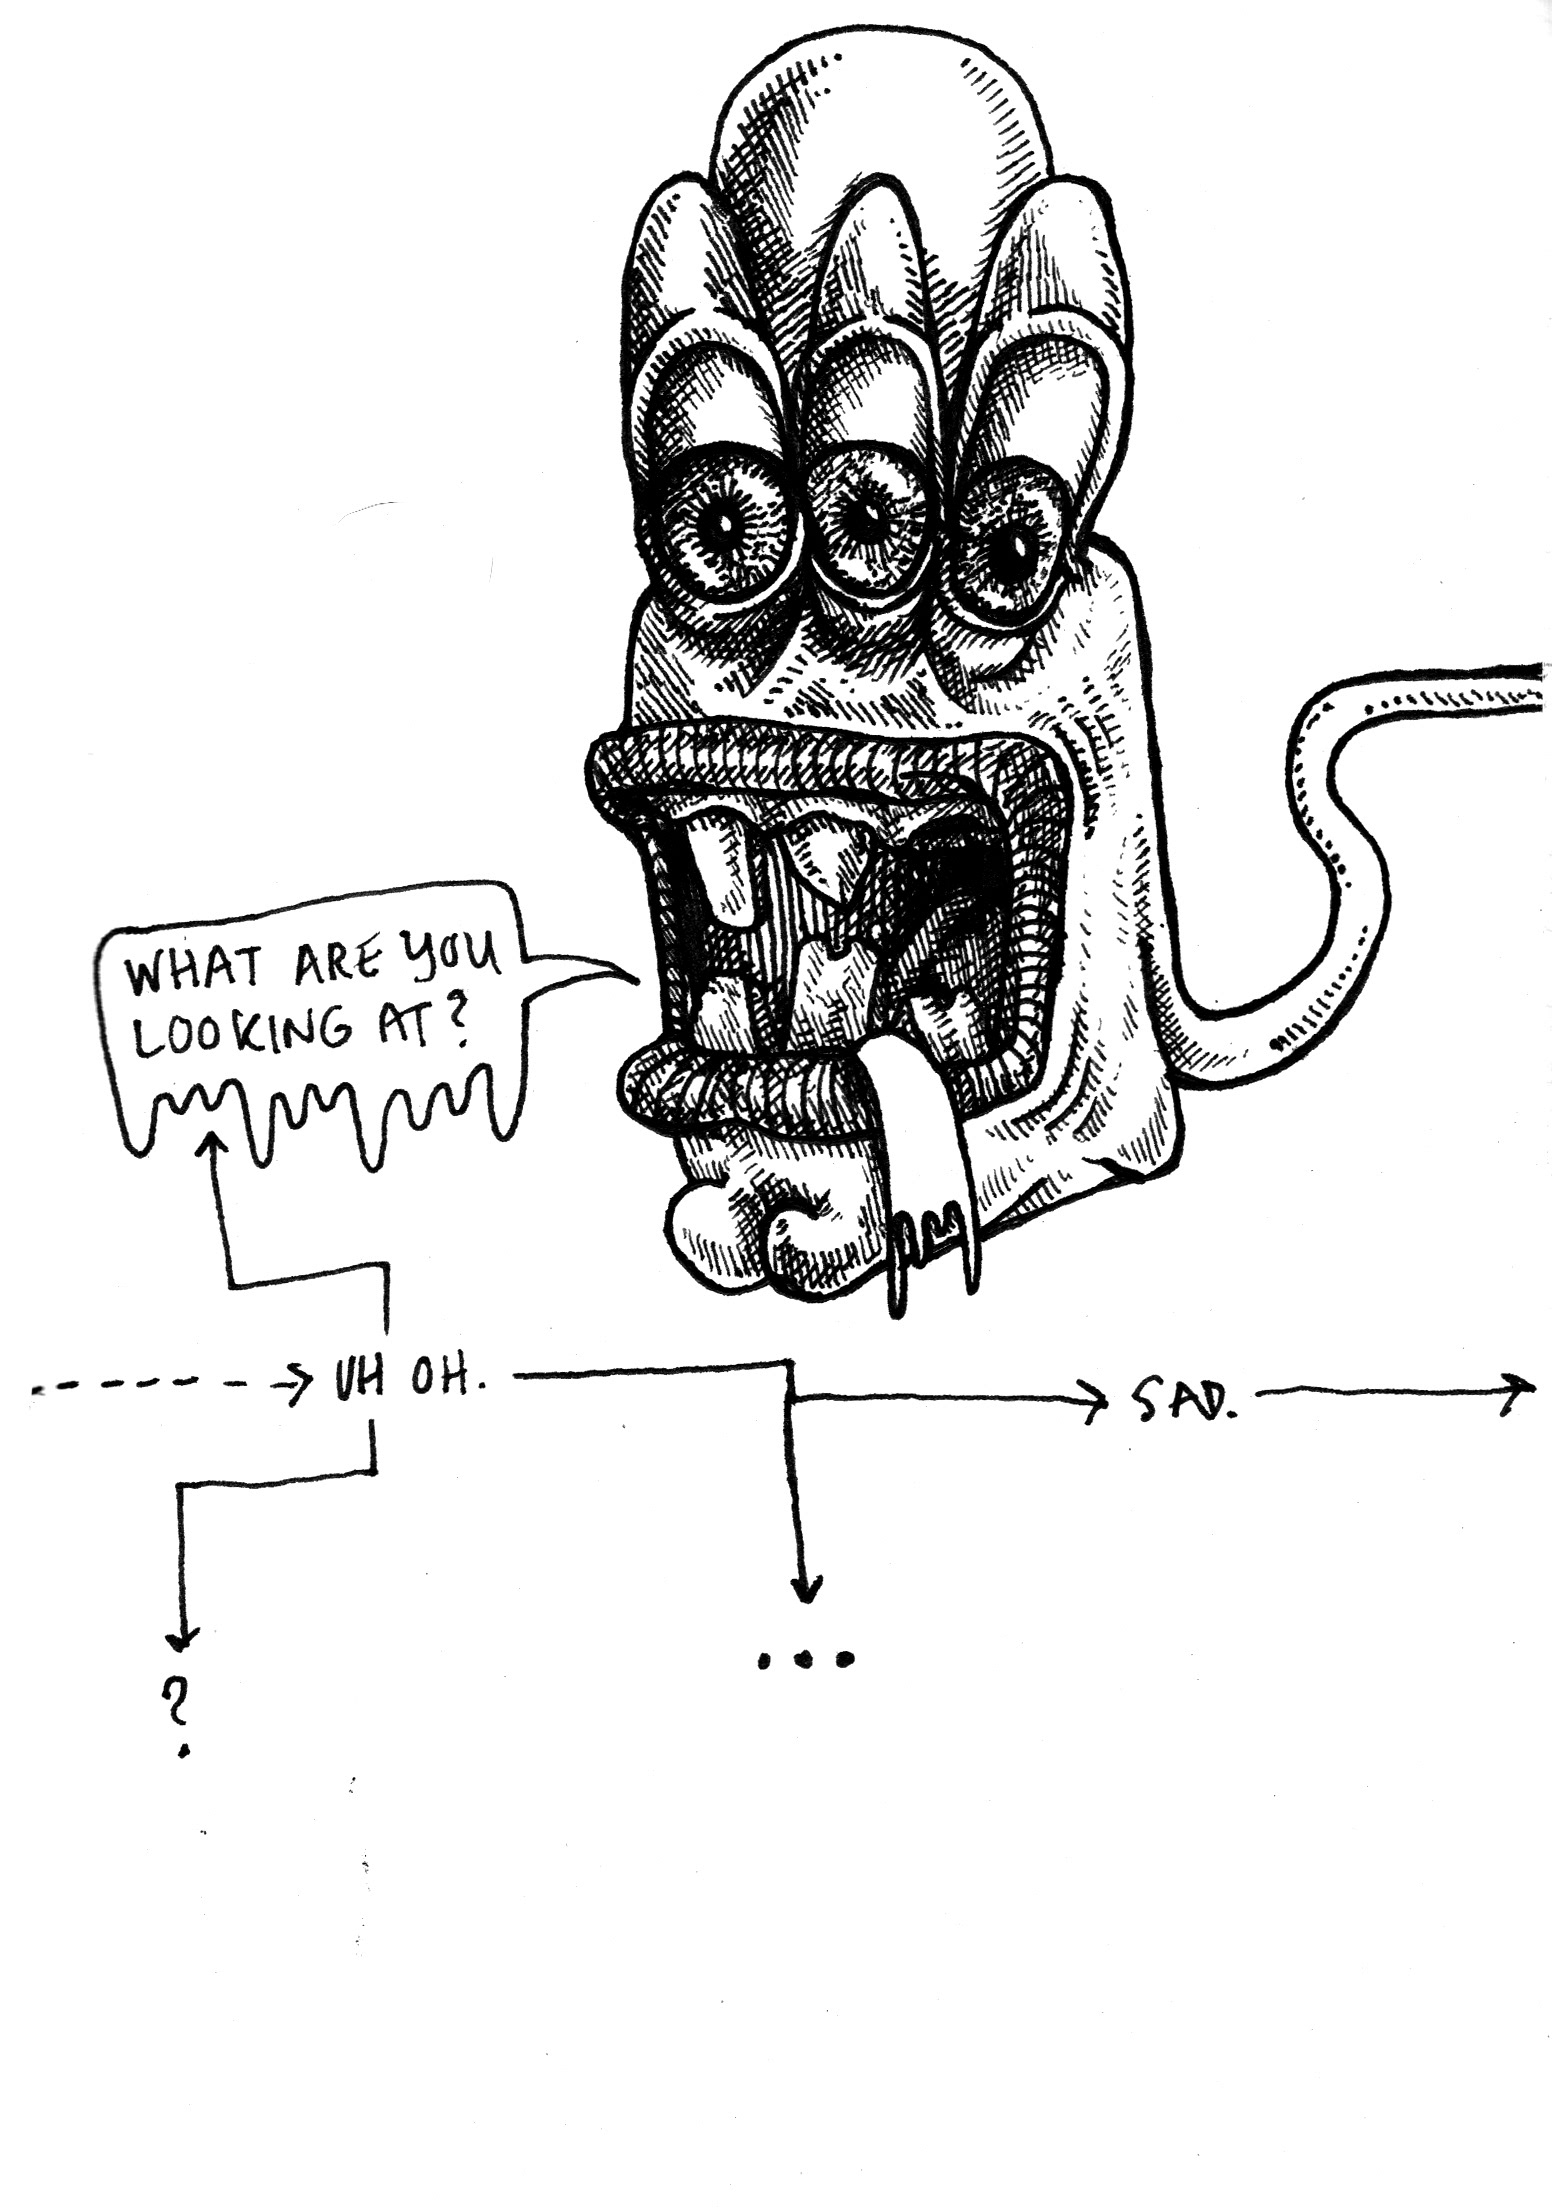 WHAT ARE YOU
LOOKING AT?
UH OH.
SAD.
?
...